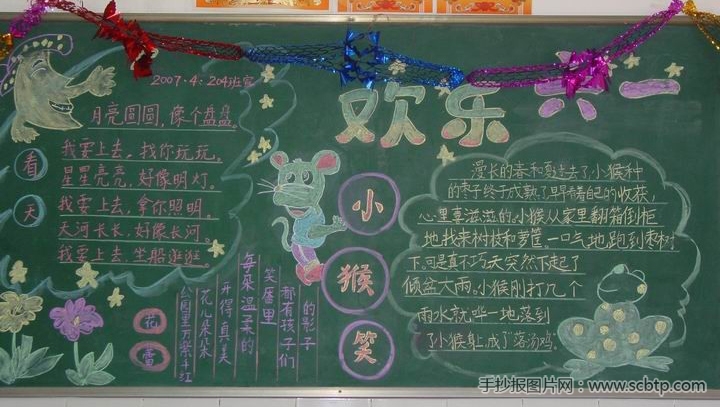 2007·4·204班宣
欢乐六一
看天
月亮圆圆,像个盘盘。
我要上去,找你玩玩。
星星亮亮,好像明灯。
我要上去,拿你照明。
天河长长,好像长河。
我要上去,坐船逛逛。
花蕾
公园里万紫千红
花儿朵朵
开得真美
每朵温柔的
笑靥里
都有孩子们
的影子
小猴笑
漫长的春和夏过去了小猴种
的枣终于成熟了早早看自己的收获,
心里喜滋滋的。小猴从家里翻箱倒柜
地找来树枝和萝筐一口气地跑到枣树
下。可是真不巧天突然下起了
倾盆大雨。小猴刚打几个
雨水就哗一地落到
了小猴身上,成了"落汤鸡"
手抄报图片网:www.scbtp.com